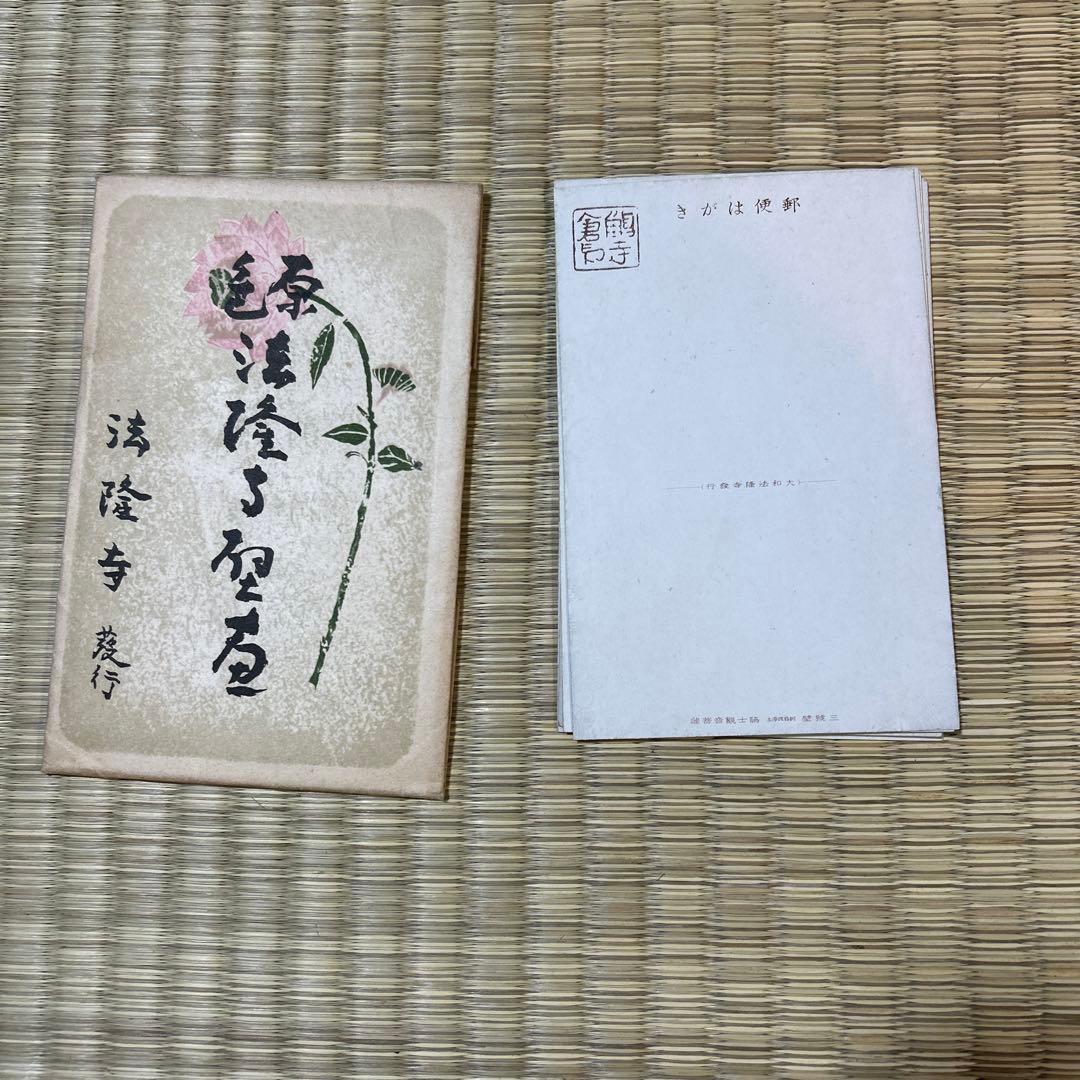 原色
法隆寺壁画
法隆寺 發行
郵便はがき
鵤寺
倉印
(大和法隆寺發行)
三號壁 脇士觀音菩薩